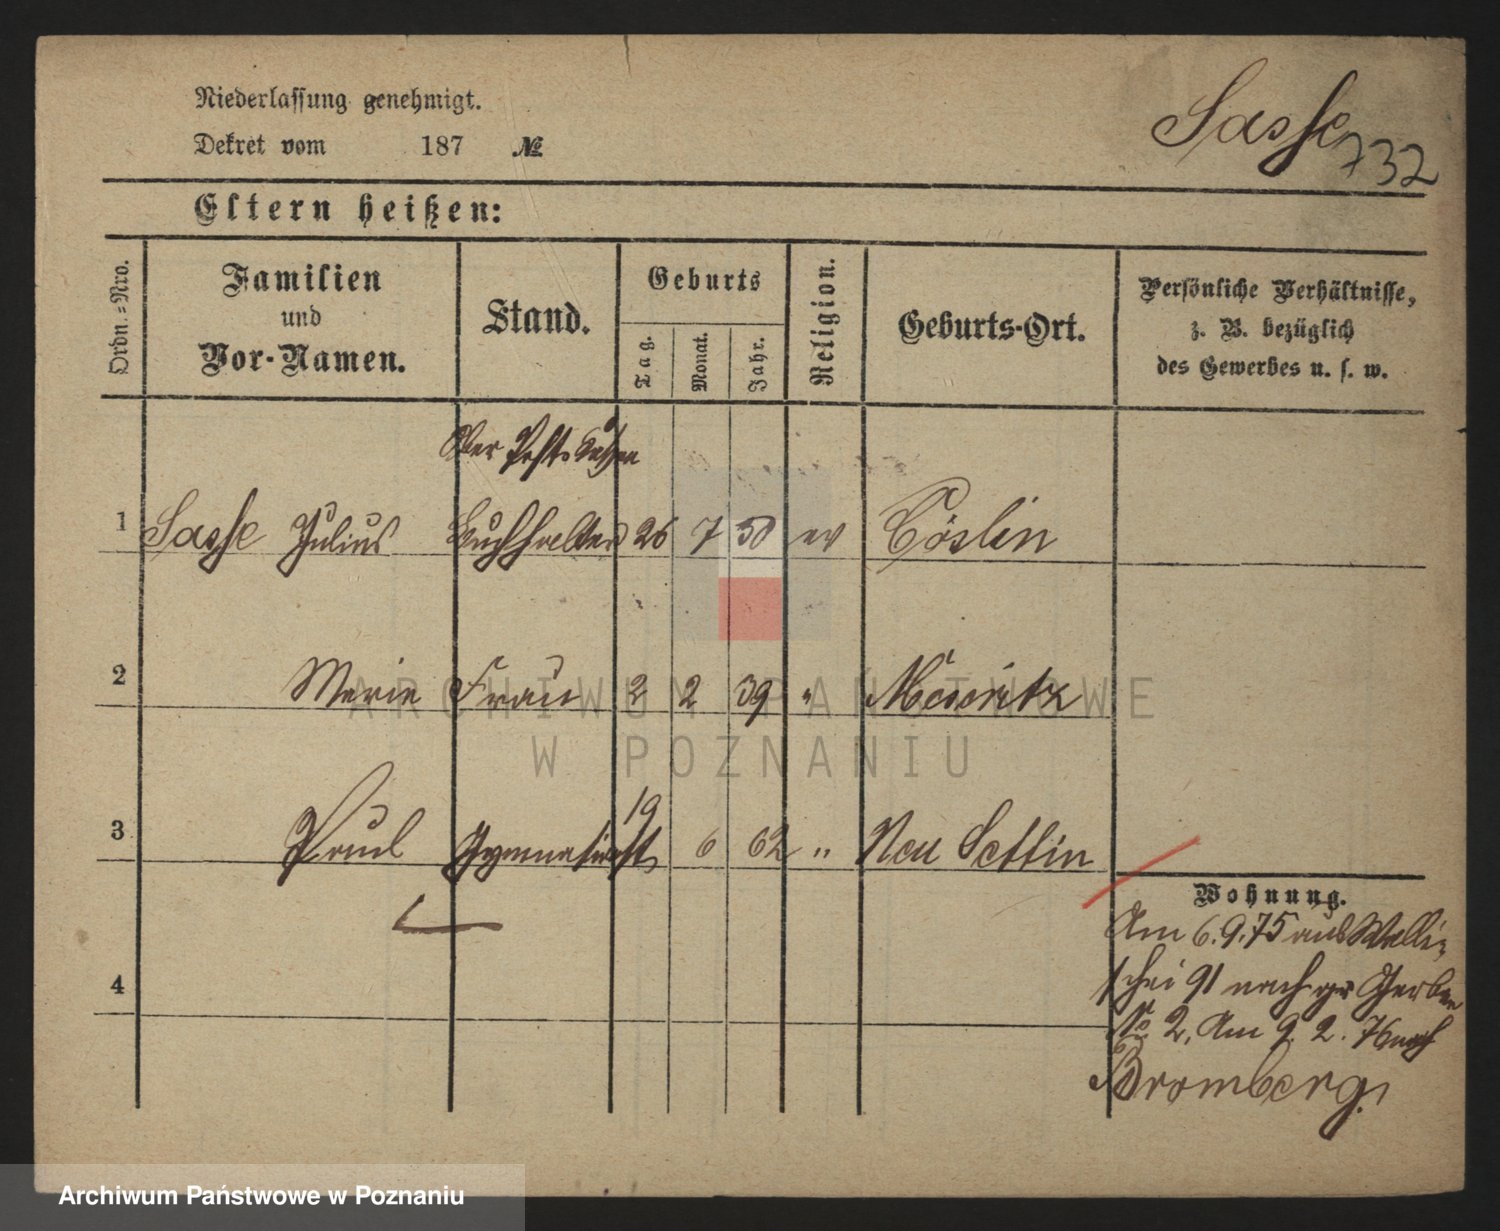 Niederlassung genehmigt.
Dekret vom 187 №
Sasse
732
Eltern heißen:
Ordn.=Nro.
Familien
und
Vor-Namen.
Stand.
Geburts
Tag.
Monat.
Jahr.
Religion.
Geburts-Ort.
Persönliche Verhältnisse,
z. B. bezüglich
des Gewerbes u. s. w.
Ober Post-Kassen
1 Sasse Julius Buchhalter 26 7 30 ev Cöslin
2 Marie Frau 2 2 39 " Meseritz
3 Paul Gymnasiast 19 6 62 " Neu Settin
4
Wohnung.
Am 6.9.75 aus Walli=
schei 91 nach gr Gerber
No 2. Am 9. 2. 76 nach
Bromberg.
ARCHIWUM PAŃSTWOWE
W POZNANIU
Archiwum Państwowe w Poznaniu